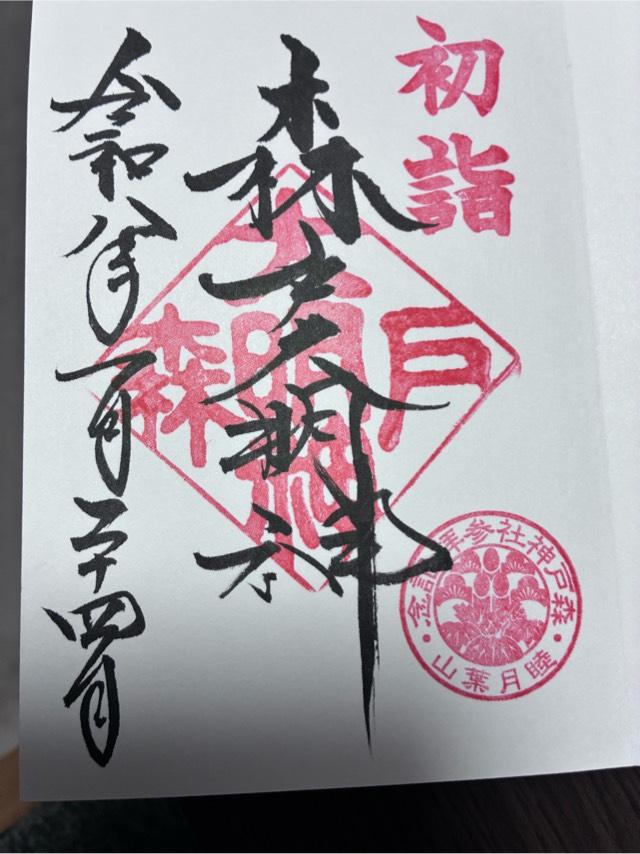 初詣
森戸大明神
森戸大明神
令和八年一月二十四日
森戸神社参拝記念
睦月葉山